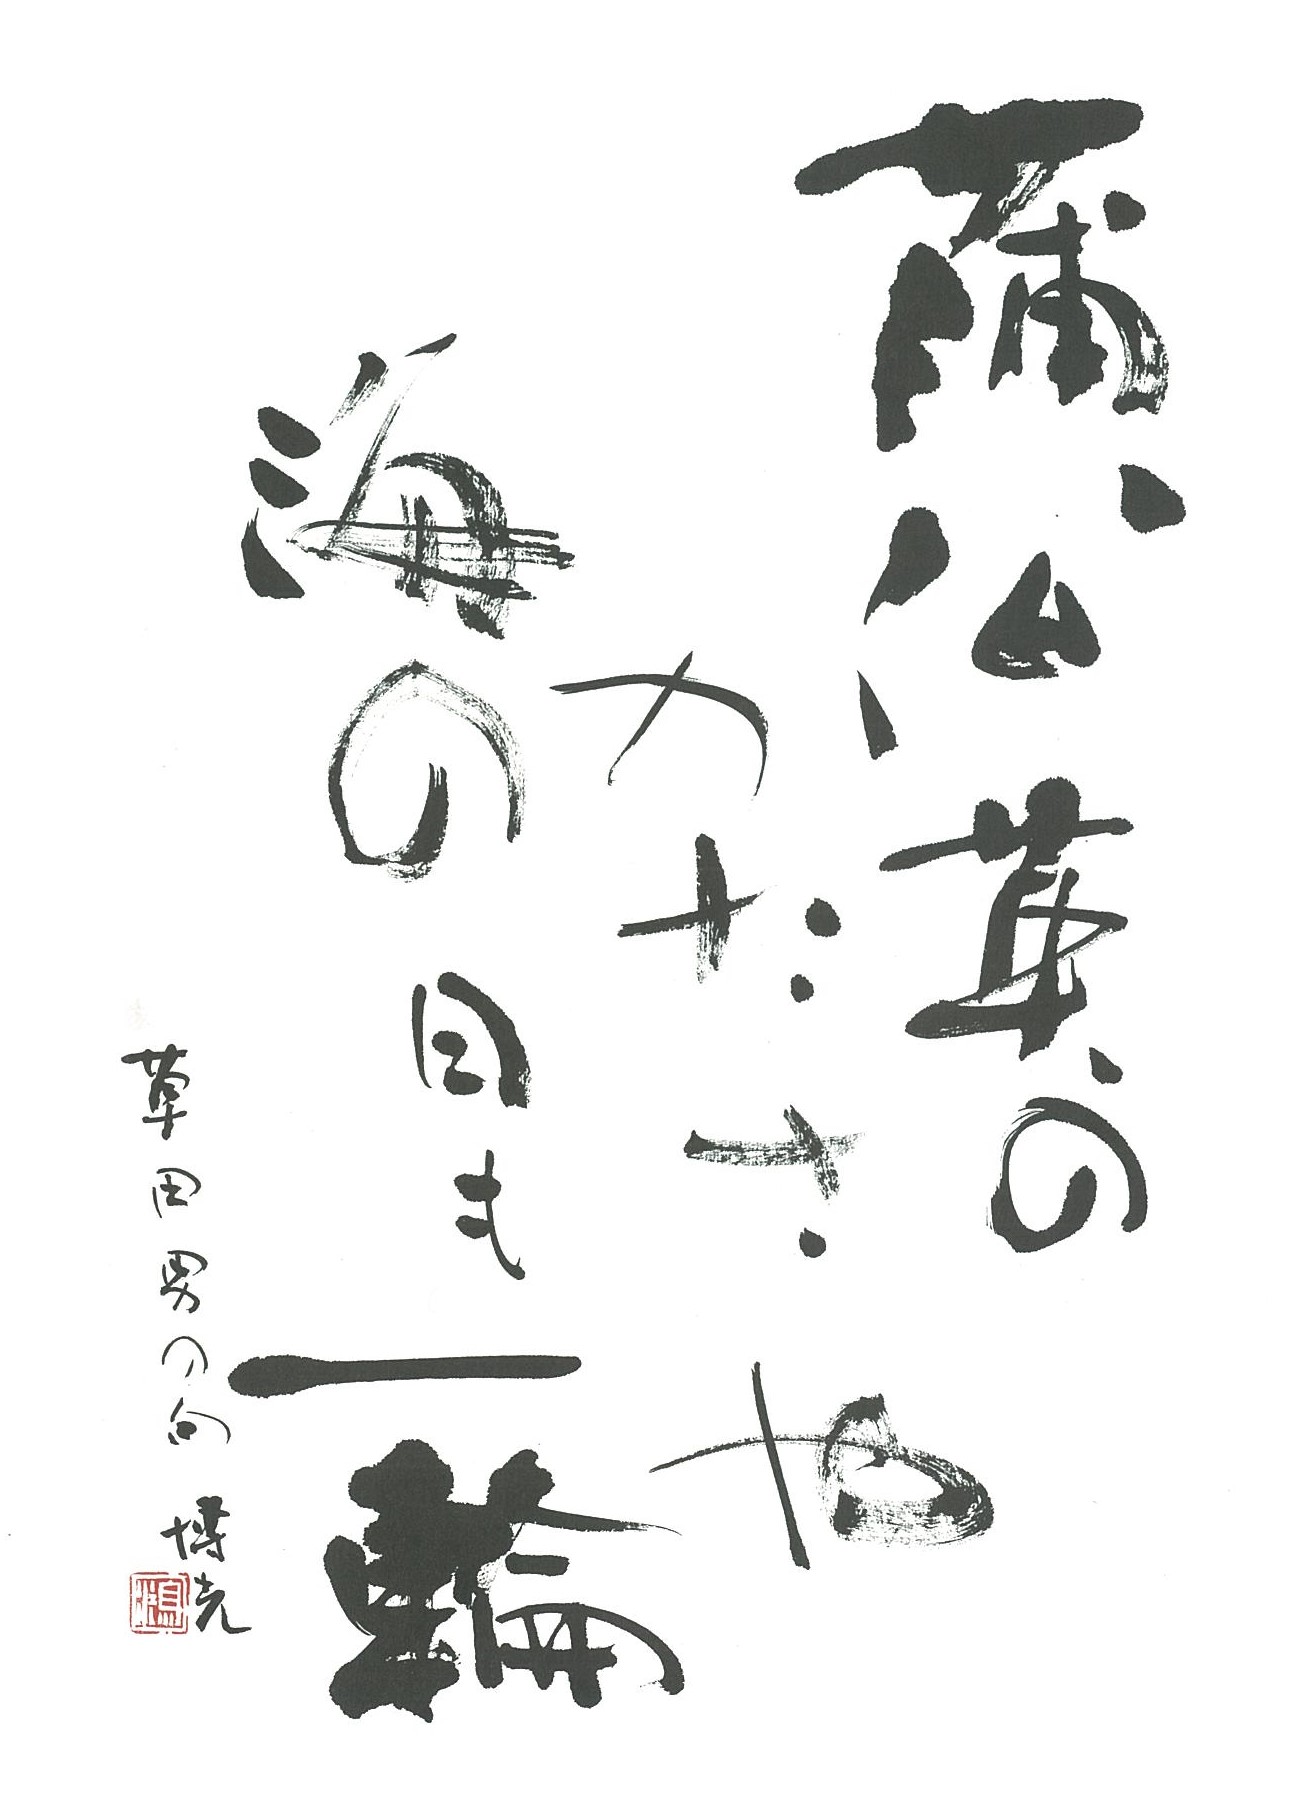 蒲公英の
かたさや
海の日も
一輪
草田男の句 博光